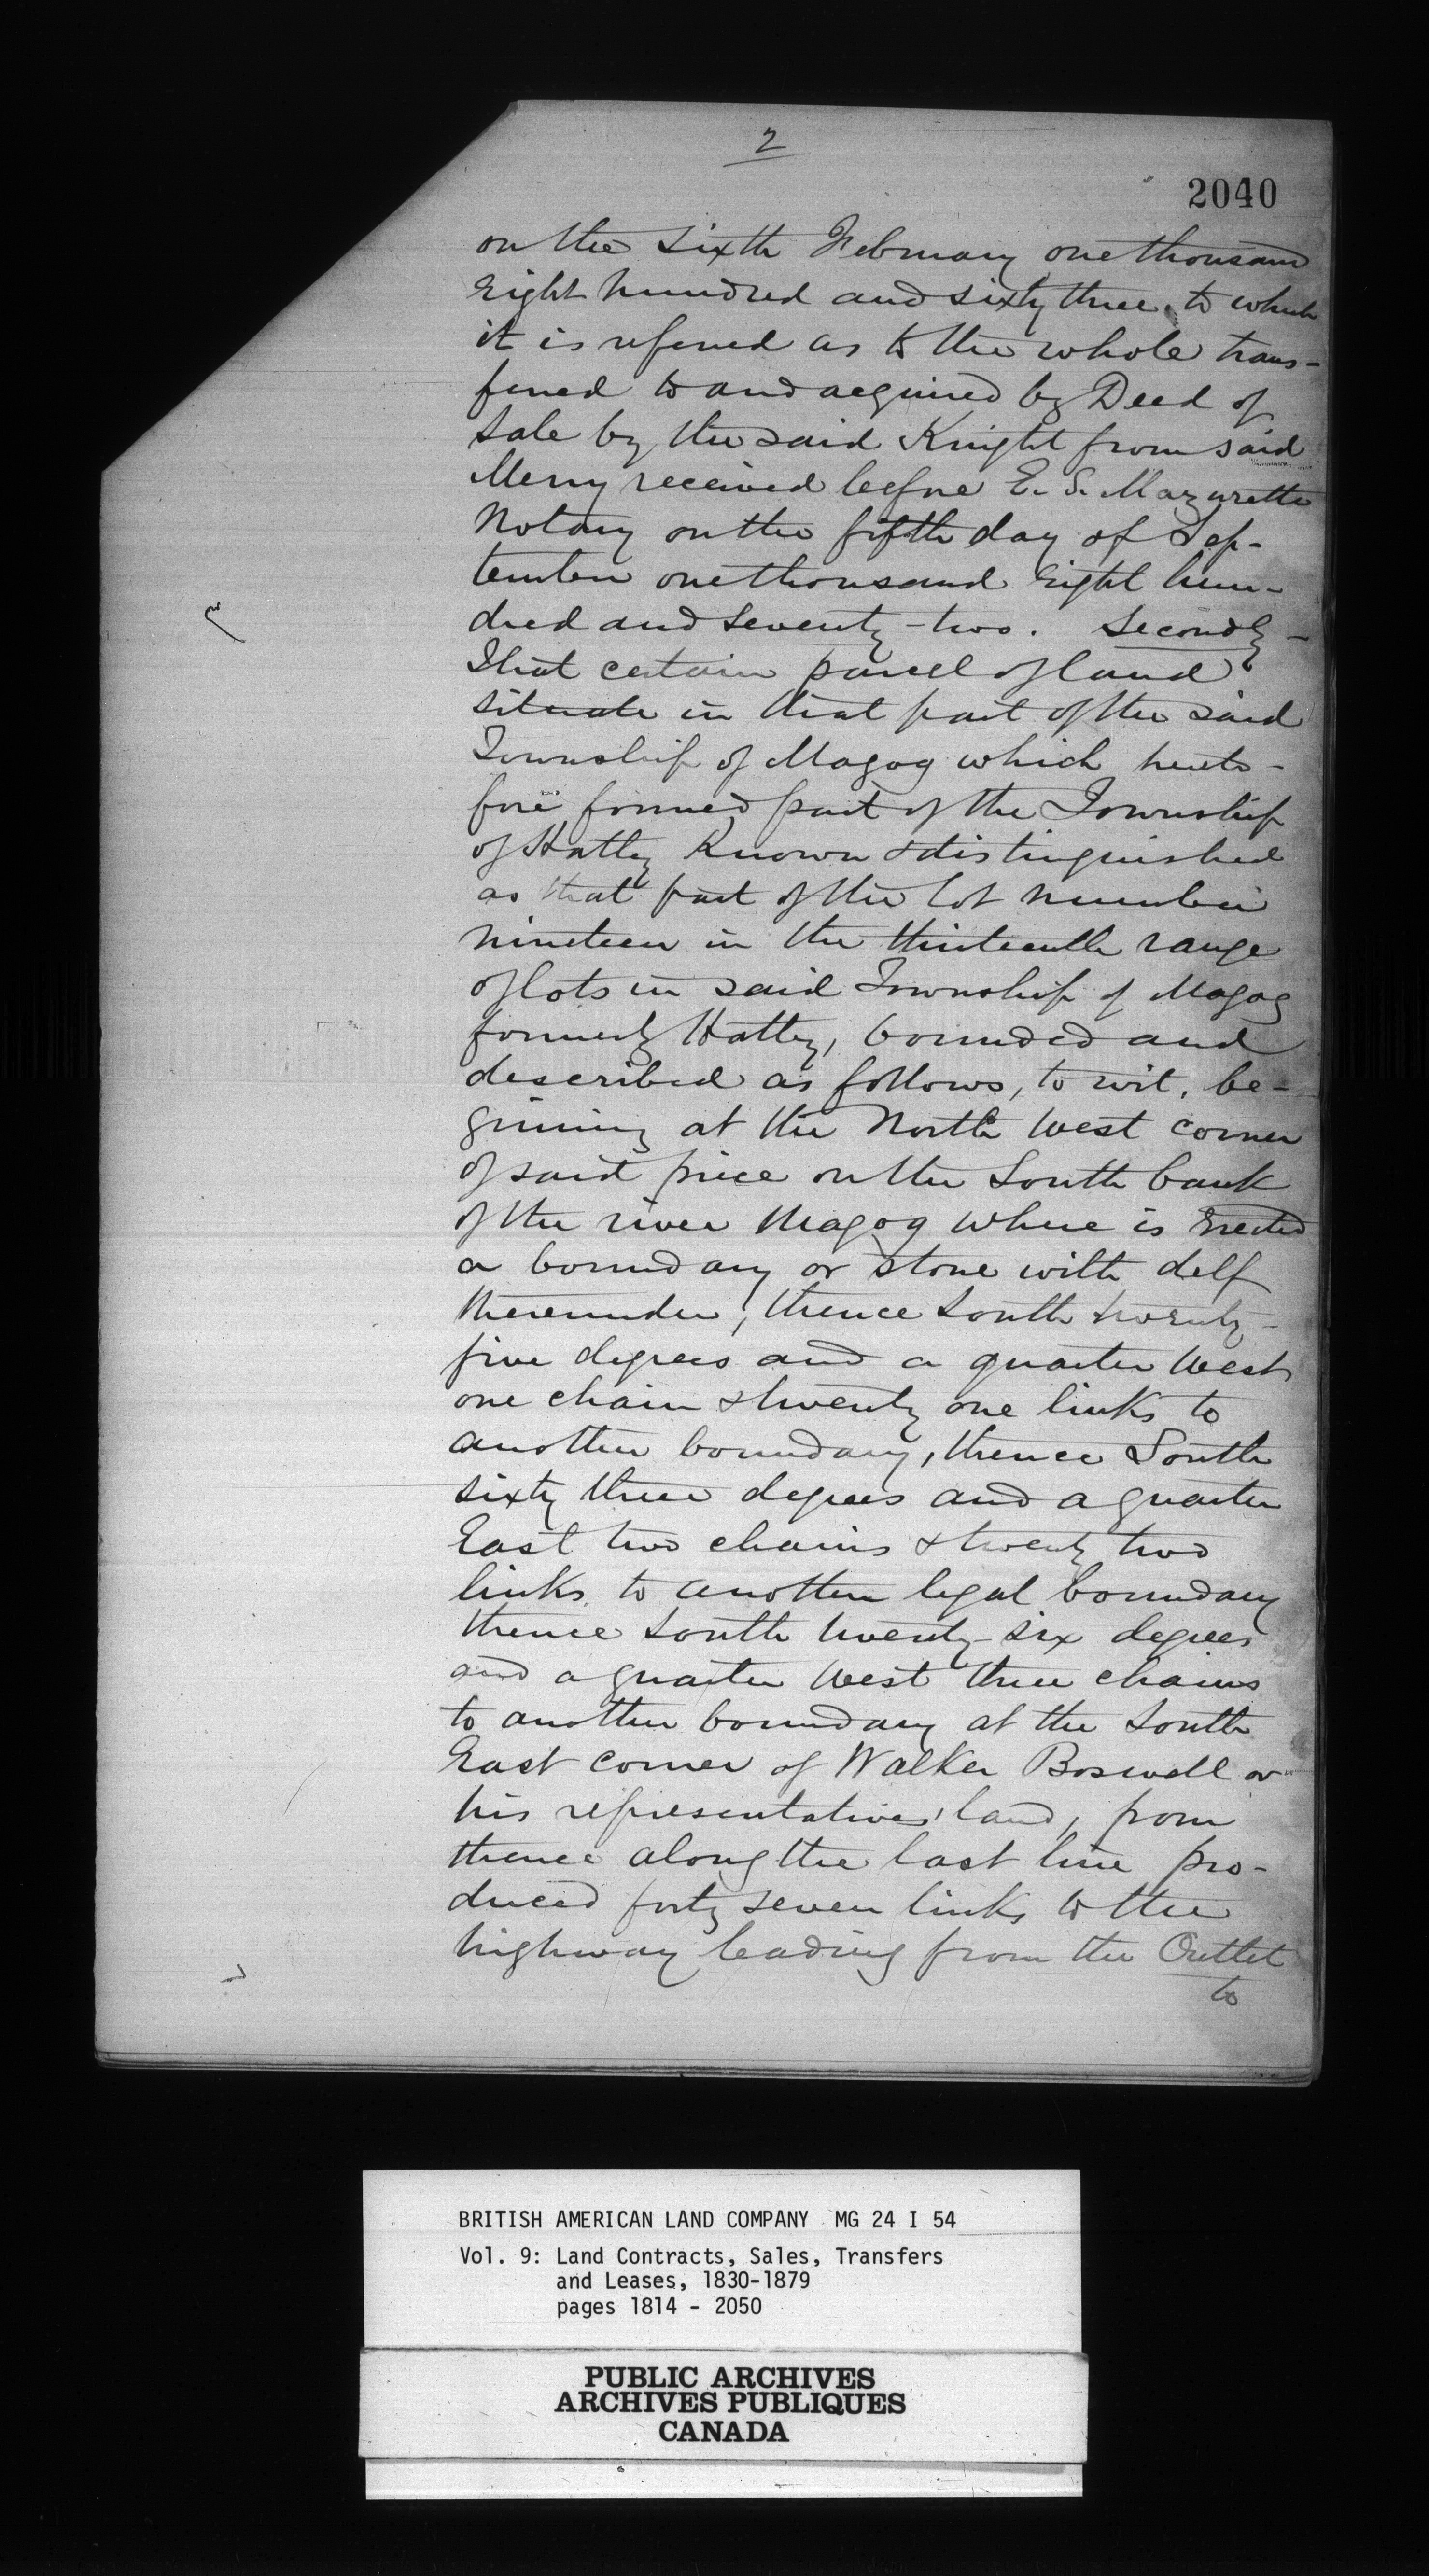 2
2040
on the sixth February one thousand
Eight hundred and sixty three, to which
it is referred as to the whole trans-
ferred to and acquired by Deed of
Sale by the said Knight from said
Merry received before E. S. Mazurette
Notary on the fifth day of Sep-
tember one thousand Eight hun-
dred and seventy-two. Secondly -
That certain parcel of land
situate in that part of the said
Township of Magog which hereto-
fore formed part of the Township
of Hatley Known & distinguished
as that part of the lot number
nineteen in the thirteenth range
of lots in said Township of Magog
formerly Hatley, bounded and
described as follows, to wit, be-
ginning at the North West corner
of said piece on the South bank
of the river Magog where is Erected
a boundary or stone with delf
thereunder, thence South twenty-
five degrees and a quarter West
one chain & twenty one links to
another boundary, thence South
sixty three degrees and a quarter
East two chains & twenty two
links to another legal boundary
thence South twenty-six degrees
and a quarter West three chains
to another boundary at the South
East corner of Walker Boswell or
his representatives' land, from
thence along the last line pro-
duced forty seven links to the
highway leading from the Outlet
to
BRITISH AMERICAN LAND COMPANY MG 24 I 54
Vol. 9: Land Contracts, Sales, Transfers
and Leases, 1830-1879
pages 1814 - 2050
PUBLIC ARCHIVES
ARCHIVES PUBLIQUES
CANADA